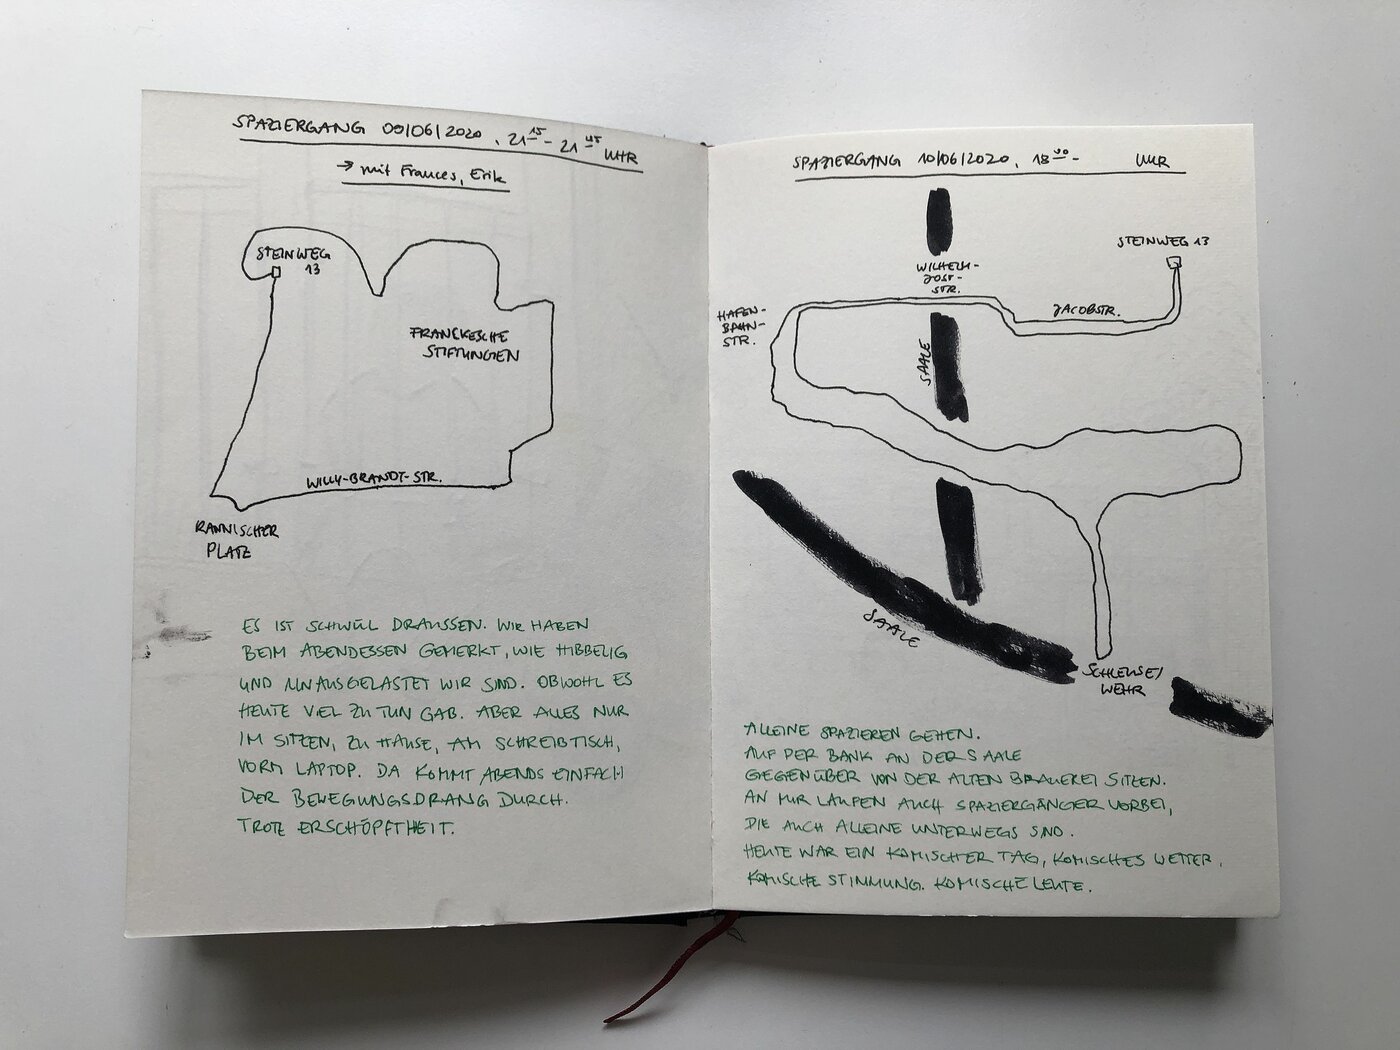 SPAZIERGANG 09/06/2020, 21 15 - 21 45 UHR
→ mit Frances, Erik
STEINWEG
13
FRANCKESCHE
STIFTUNGEN
WILLY-BRANDT-STR.
RANNISCHER
PLATZ
ES IST SCHWÜL DRAUSSEN. WIR HABEN
BEIM ABENDESSEN GEMERKT, WIE HIBBELIG
UND UNAUSGELASTET WIR SIND. OBWOHL ES
HEUTE VIEL ZU TUN GAB. ABER ALLES NUR
IM SITZEN, ZU HAUSE, AM SCHREIBTISCH,
VORM LAPTOP. DA KOMMT ABENDS EINFACH
DER BEWEGUNGSDRANG DURCH.
TROTZ ERSCHÖPFTHEIT.
SPAZIERGANG 10/06/2020, 18 - UHR
STEINWEG 13
WILHELM-
JOST-
STR.
JACOBSTR.
HAFEN-
BAHN-
STR.
SAALE
SAALE
SCHLEUSE/
WEHR
ALLEINE SPAZIEREN GEHEN.
AUF DER BANK AN DER SAALE
GEGENÜBER VON DER ALTEN BRAUEREI SITZEN.
AN MIR LAUFEN AUCH SPAZIERGÄNGER VORBEI,
DIE AUCH ALLEINE UNTERWEGS SIND.
HEUTE WAR EIN KOMISCHER TAG, KOMISCHES WETTER,
KOMISCHE STIMMUNG. KOMISCHE LEUTE.